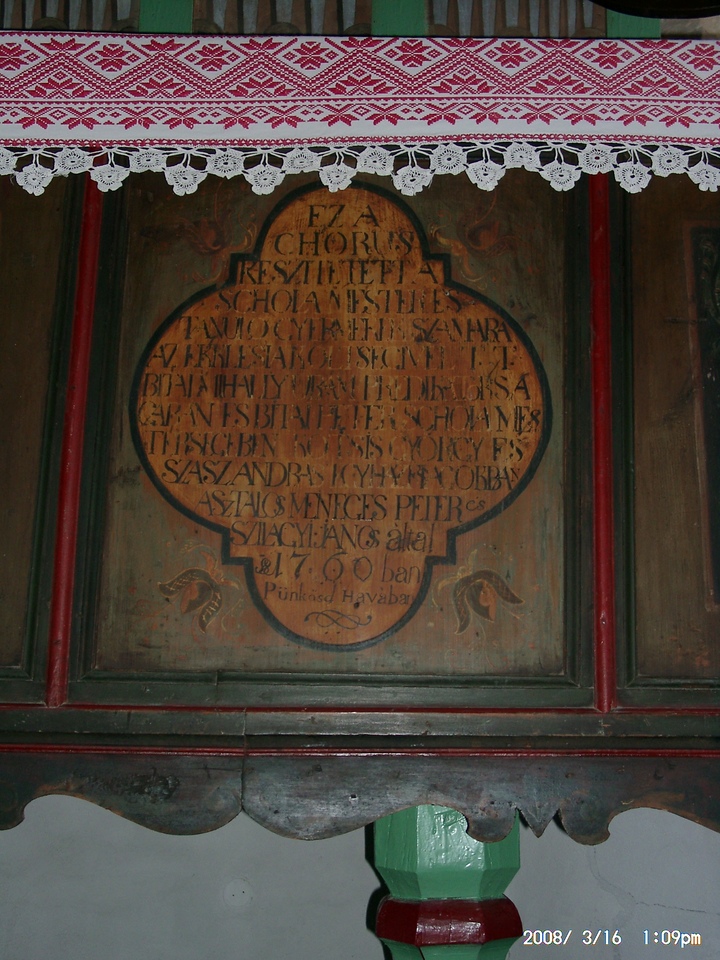 EZ A
CHORUS
KESZITTETETT A
SCHOLA MESTER ES
TANULO GYERMEKEK SZAMARA
AZ EKKLESIA KÖLTSEGIVEL
BITAI MIHALY URAM PREDIKATORSA
GABAN ES BITAI PETER SCHOLA MES
TERSEGEBEN GYÖRGY ES
SZASZ ANDRAS EGYHAZFI
ASZTALOS MENEGES PETER és
SZILAGYI JANOS által
1760 ban
Pünkösd Havában
2008/ 3/16 1:09pm